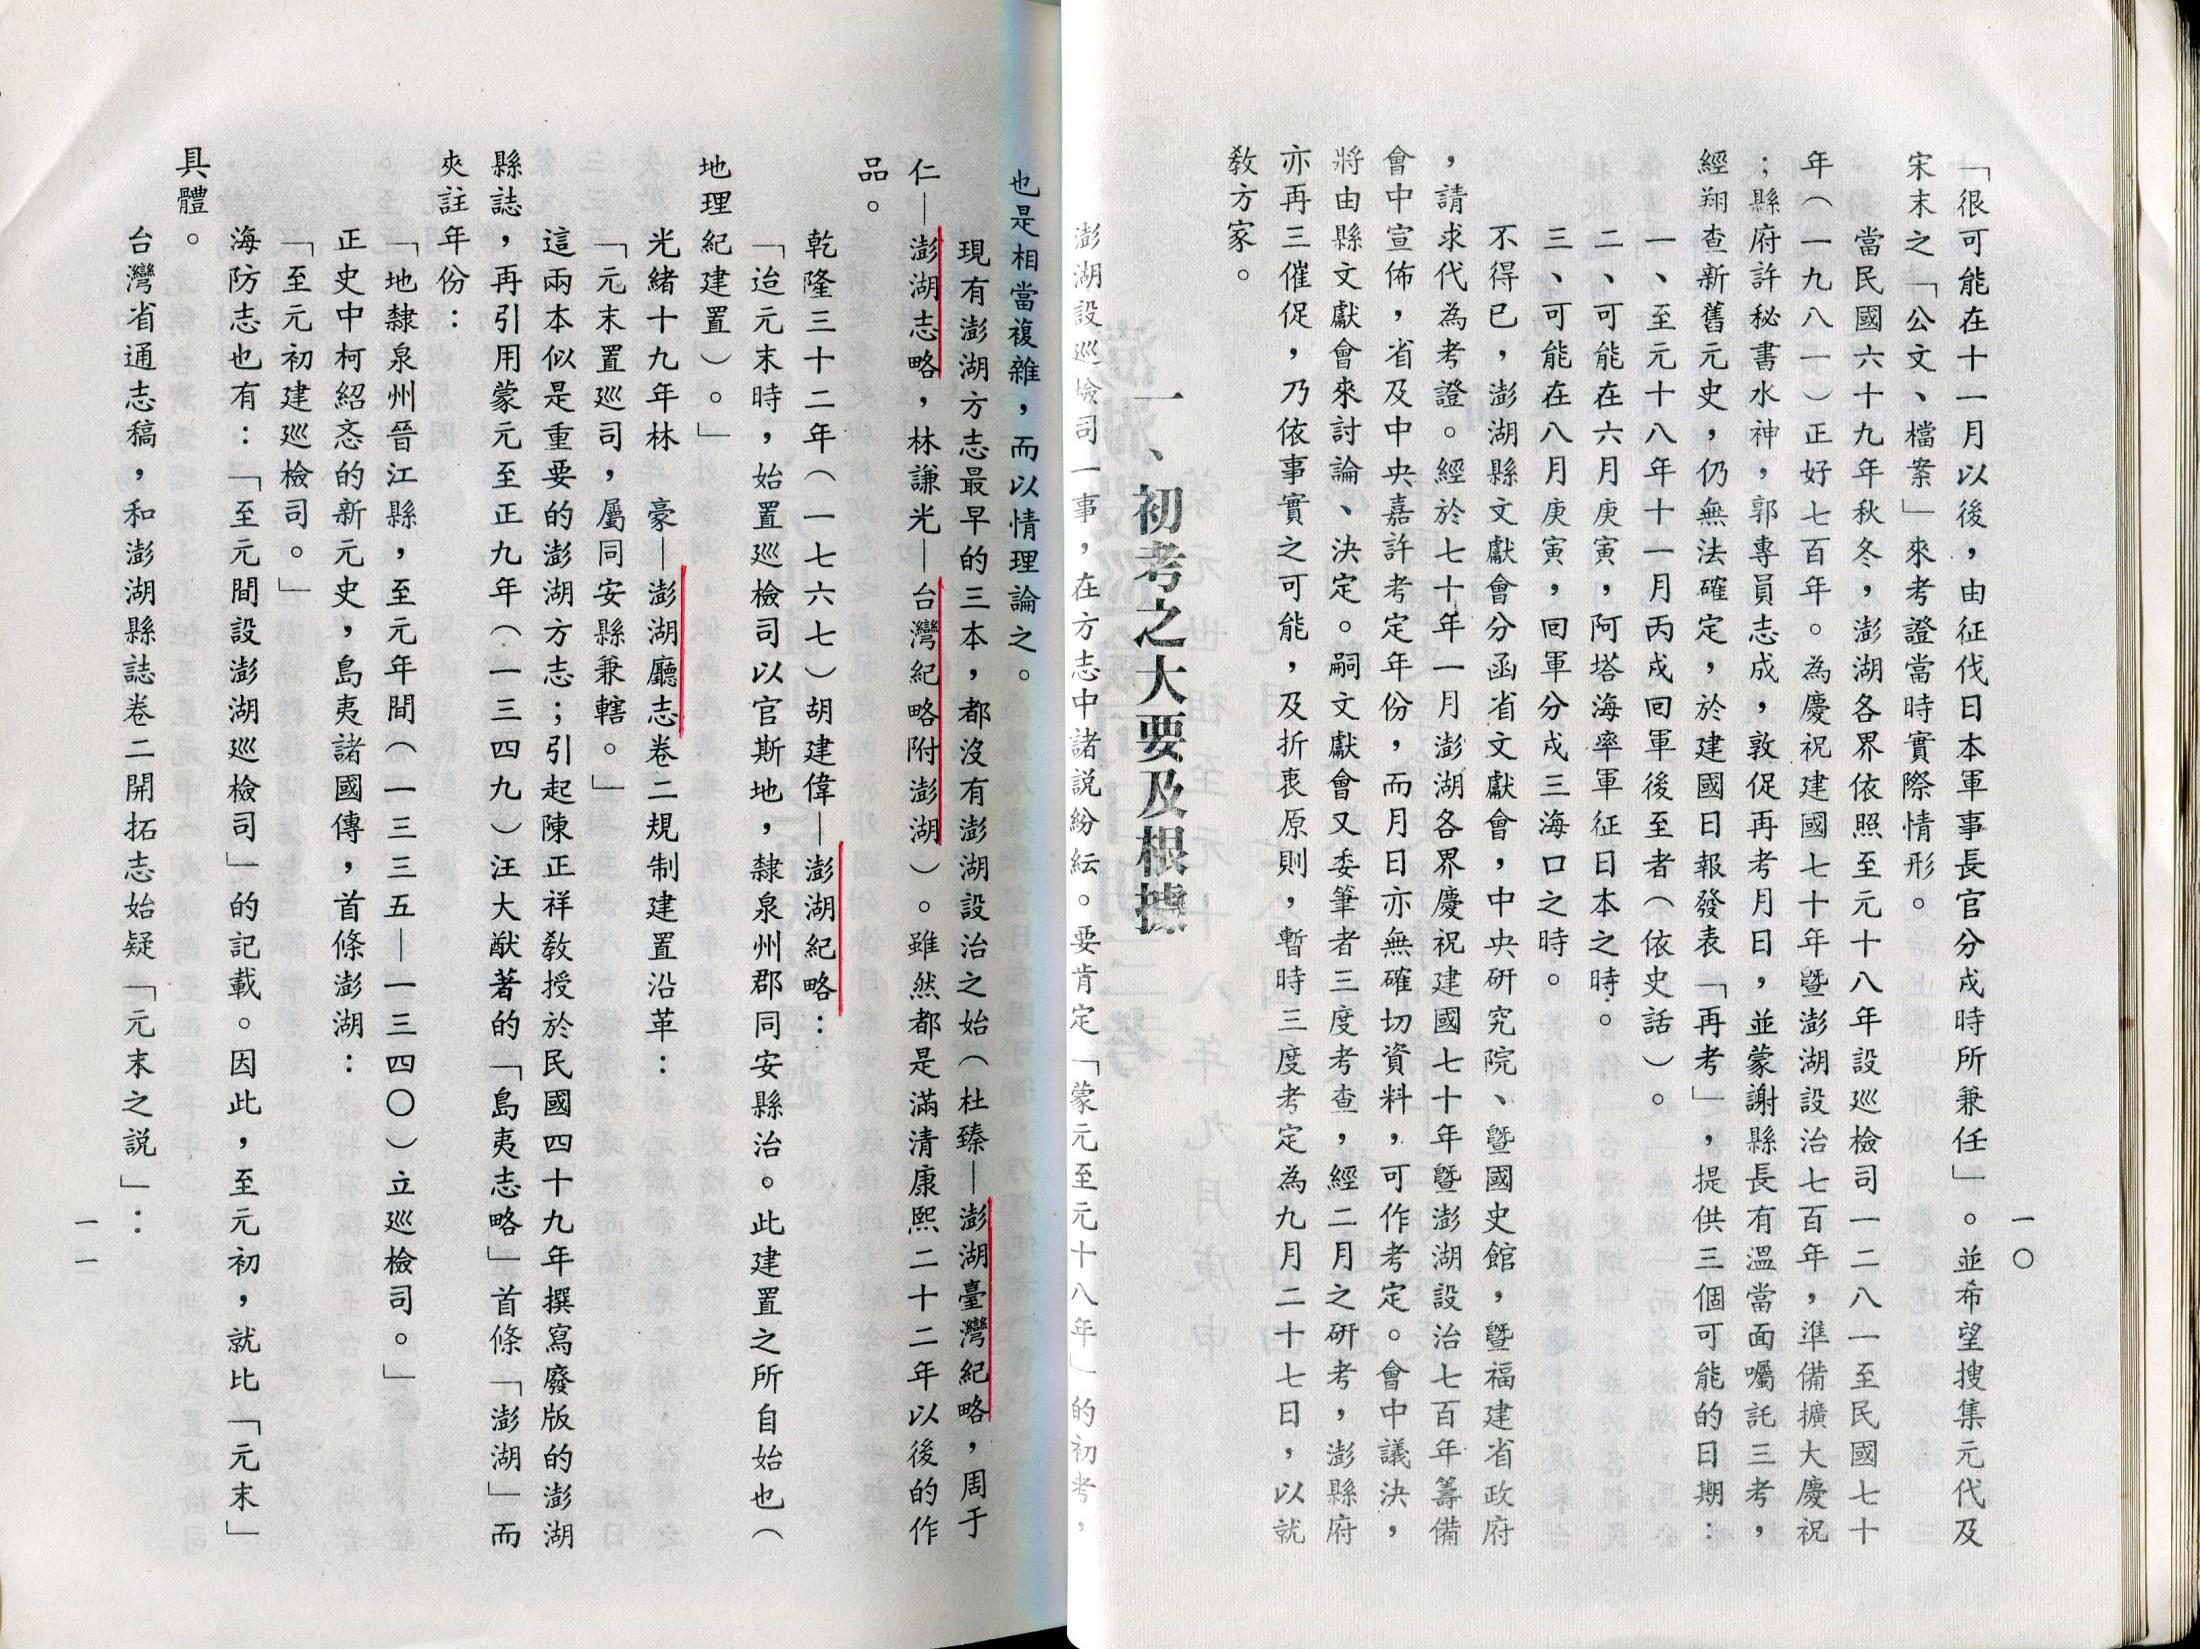 一〇
「很可能在十一月以後，由征伐日本軍事長官分戍時所兼任」。並希望搜集元代及
宋末之「公文、檔案」來考證當時實際情形。
當民國六十九年秋冬，澎湖各界依照至元十八年設巡檢司一二八一至民國七十
年（一九八一）正好七百年。為慶祝建國七十年暨澎湖設治七百年，準備擴大慶祝
；縣府許秘書水神，郭專員志成，敦促再考月日，並蒙謝縣長有溫當面囑託三考，
經翔查新舊元史，仍無法確定，於建國日報發表「再考」，提供三個可能的日期：
一、至元十八年十一月丙戍回軍後至者（依史話）。
二、可能在六月庚寅，阿塔海率軍征日本之時。
三、可能在八月庚寅，回軍分戍三海口之時。
不得已，澎湖縣文獻會分函省文獻會，中央研究院、暨國史館，暨福建省政府
，請求代為考證。經於七十年一月澎湖各界慶祝建國七十年暨澎湖設治七百年籌備
會中宣佈，省及中央嘉許考定年份，而月日亦無確切資料，可作考定。會中議決，
將由縣文獻會來討論、決定。嗣文獻會又委筆者三度考查，經二月之研考，澎縣府
亦再三催促，乃依事實之可能，及折衷原則，暫時三度考定為九月二十七日，以就
教方家。
一、初考之大要及根據
澎湖設巡檢司一事，在方志中諸說紛紜。要肯定「蒙元至元十八年」的初考，
也是相當複雜，而以情理論之。
現有澎湖方志最早的三本，都沒有澎湖設治之始（杜臻—澎湖臺灣紀略，周于
仁—澎湖志略，林謙光—台灣紀略附澎湖）。雖然都是滿清康熙二十二年以後的作
品。
乾隆三十二年（一七六七）胡建偉—澎湖紀略：
「迨元末時，始置巡檢司以官斯地，隸泉州郡同安縣治。此建置之所自始也（
地理紀建置）。」
光緒十九年林　豪—澎湖廳志卷二規制建置沿革：
「元末置巡司，屬同安縣兼轄。」
這兩本似是重要的澎湖方志；引起陳正祥教授於民國四十九年撰寫廢版的澎湖
縣誌，再引用蒙元至正九年（一三四九）汪大猷著的「島夷志略」首條「澎湖」而
夾註年份：
「地隸泉州晉江縣，至元年間（一三三五—一三四〇）立巡檢司。」
正史中柯紹忞的新元史，島夷諸國傳，首條澎湖：
「至元初建巡檢司。」
海防志也有：「至元間設澎湖巡檢司」的記載。因此，至元初，就比「元末」
具體。
台灣省通志稿，和澎湖縣誌卷二開拓志始疑「元末之說」：
一一